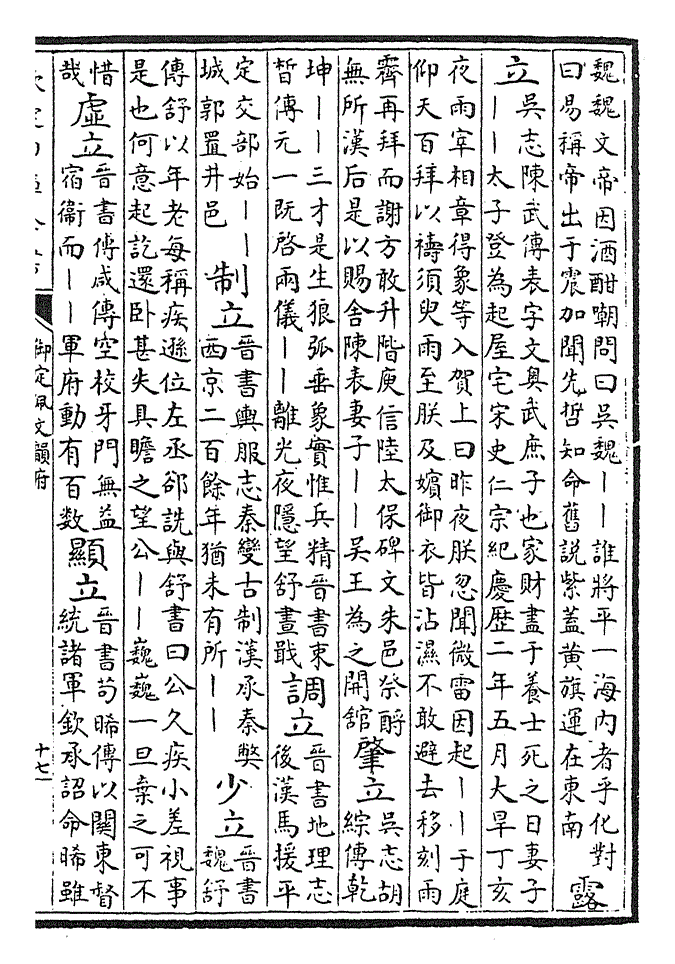 魏魏文帝因酒酣嘲問曰吳魏——誰將平一海內者乎化對
曰易稱帝出于震加聞先哲知命舊說紫蓋黃旗運在東南
露
立
吳志陳武傳表字文奧武庶子也家財盡于養士死之日妻子
——太子登為起屋宅宋史仁宗紀慶歷二年五月大旱丁亥
夜雨宰相章得象等入賀上曰昨夜朕忽聞微雷因起——于庭
仰天百拜以禱須臾雨至朕及嬪御衣皆沾濕不敢避去移刻雨
霽再拜而謝方敢升階庾信陸太保碑文朱邑祭酹
無所漢后是以賜舍陳表妻子——吳王為之開舘
肇立
吳志胡
綜傳乾
坤——三才是生狼弧垂象實惟兵精晉書束
晳傳元一既啓兩儀——離光夜隱望舒晝戢
調立
晉書地理志
後漢馬援平
定交部始——
城郭置井邑
制立
晉書輿服志秦變古制漢承秦弊
西京二百餘年猶未有所——
少立
晉書
魏舒
傳舒以年老每稱疾遜位左丞郤詵與舒書曰公久疾小差視事
是也何意起訖還臥甚失具瞻之望公——巍巍一旦棄之可不
惜
哉
虛立
晉書傅咸傳空校牙門無益
宿衞而——軍府動有百數
顯立
晉書茍晞傳以關東督
統諸軍欽承詔命晞雖
御定佩文韻府
十七